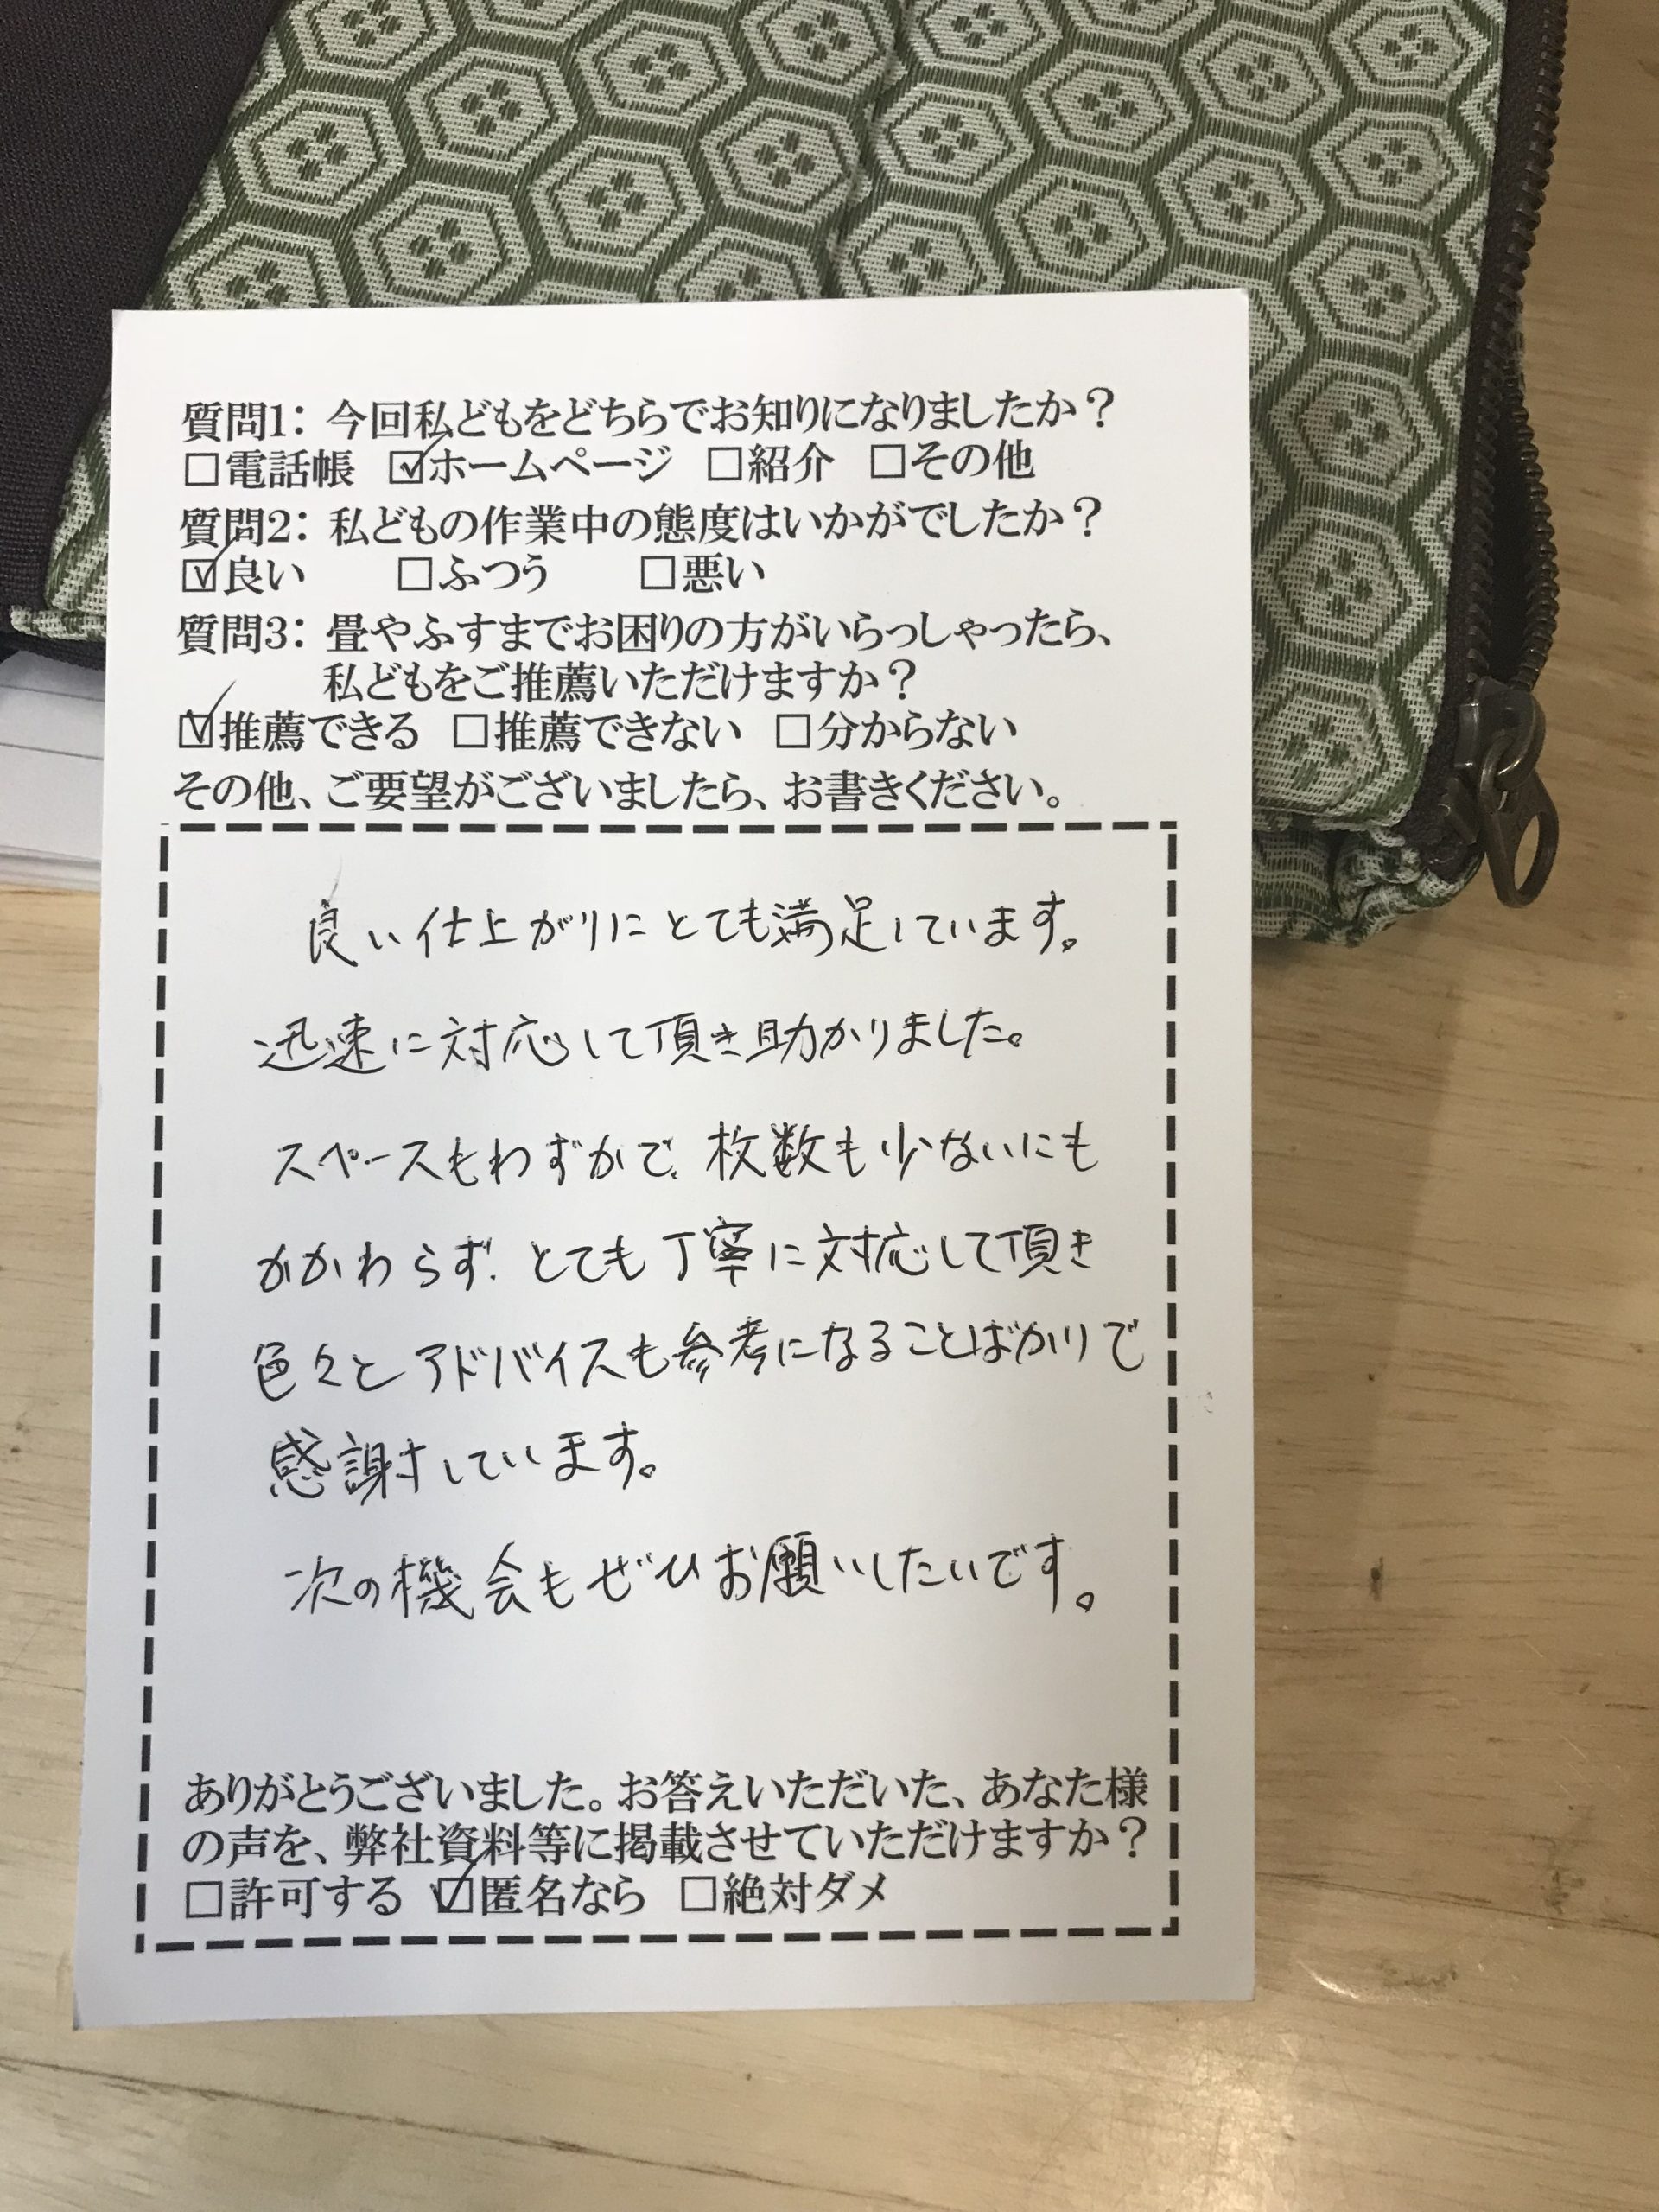 質問1：今回私どもをどちらでお知りになりましたか？
□電話帳 ☑ホームページ □紹介 □その他
質問2：私どもの作業中の態度はいかがでしたか？
☑良い □ふつう □悪い
質問3：畳やふすまでお困りの方がいらっしゃったら、
私どもをご推薦いただけますか？
☑推薦できる □推薦できない □分からない
その他、ご要望がございましたら、お書きください。
良い仕上がりにとても満足しています。
迅速に対応して頂き助かりました。
スペースもわずかで、枚数も少ないにも
かかわらず、とても丁寧に対応して頂き
色々とアドバイスも参考になることばかりで
感謝しています。
次の機会もぜひお願いしたいです。
ありがとうございました。お答えいただいた、あなた様
の声を、弊社資料等に掲載させていただけますか？
□許可する ☑匿名なら □絶対ダメ